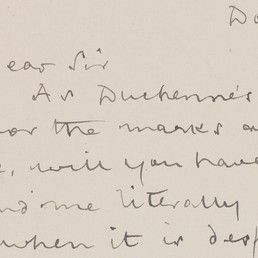 Do
ear Sir
As Duchenne's
or the masks a
e, will you have
nd me literally
when it is desp